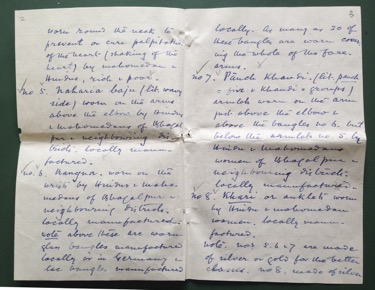 2
worn round the neck to
prevent or cure palpitation
of the heart (shaking of the
heart) by mahomedan &
Hindus, rich & poor.
no 5. Naharia Baju (lit. wavy
side) worn on the arms
above the elbow by Hindu
& mahomedans of Bhagal
pur & neighbouring dis-
tricts. locally manu-
factured.
no 6. Bangua, worn on the
wrist by Hindus & maho-
medans of Bhagalpur &
neighbouring districts.
locally manufactured.
note above these are worn
glass bangles manufactured
locally or in Germany &
lac bangles manufactured
3
locally. As many as 20 of
these bangles are worn cover
ing the whole of the fore-
arms.
no 7. Panch Khandi. (lit. panch
= five & Khandi = groups)
armlets worn on the arm
just above the elbow &
above the bangles no 6. but
below the armlets no 5 by
Hindu & Mahomedans
women of Bhagalpur &
neighbouring districts.
locally manufactured.
no 8. Khari or anklets worn
by Hindu & mahomedan
women. locally manu-
factured.
note. nos 5. 6 & 7 are made
of silver or gold for the better
classes. no 8. made of silver